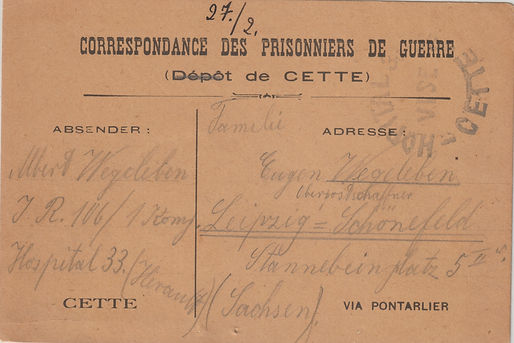 27./2.
CORRESPONDANCE DES PRISONNIERS DE GUERRE
(Dépôt de CETTE)
HOPITAL
CETTE
ABSENDER:
Albert Wegeleben
I. R. 106/1 Komp.
Hospital 33.
(Herault)
CETTE
Familie
ADRESSE:
Eugen Wegeleben
Oberpostschaffner
Leipzig=Schönefeld
Stannebeinplatz 5 II
(Sachsen)
VIA PONTARLIER